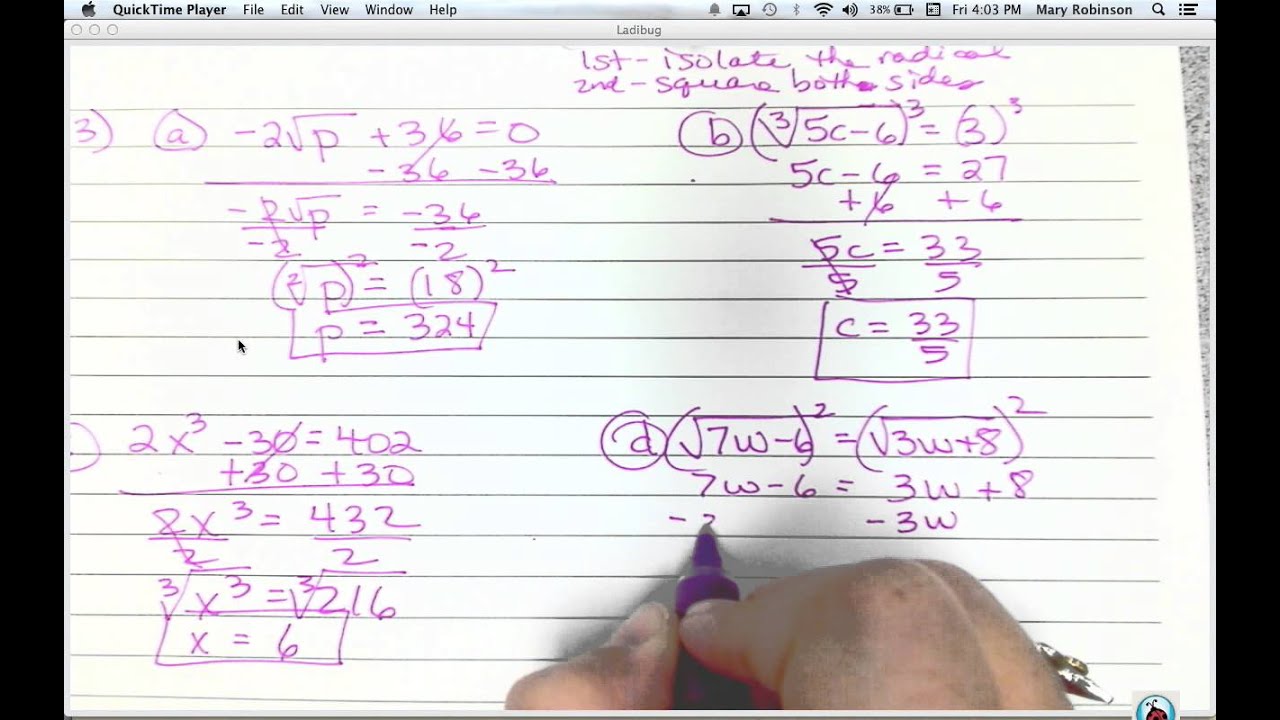 QuickTime Player File Edit View Window Help 38% Fri 4:03 PM Mary Robinson
Ladibug
1st - isolate the radical
2nd - square both sides
3) a) -2√p + 36 = 0
- 36 - 36
-2√p = -36
-2 -2
(²√p)² = (18)²
p = 324
b) (³√5c-6)³ = (3)³
5c - 6 = 27
+ 6 + 6
5c = 33
5 5
c = 33
5
) 2x³ - 30 = 402
+30 +30
2x³ = 432
2 2
³√x³ = ³√216
x = 6
d) (√7w-6)² = (√3w+8)²
7w - 6 = 3w + 8
- 3w